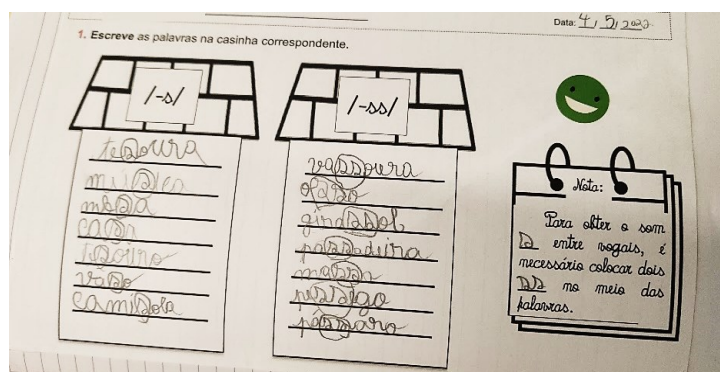 Data: 4, 5, 2022
1. Escreve as palavras na casinha correspondente.
/-s/
tesoura
música
mesa
casa
tesouro
vaso
camisola
/-ss/
vassoura
osso
girassol
passadeira
massa
pessego
pássaro
Nota:
Para obter o som
[s] entre vogais, é
necessário colocar dois
ss no meio das
palavras.